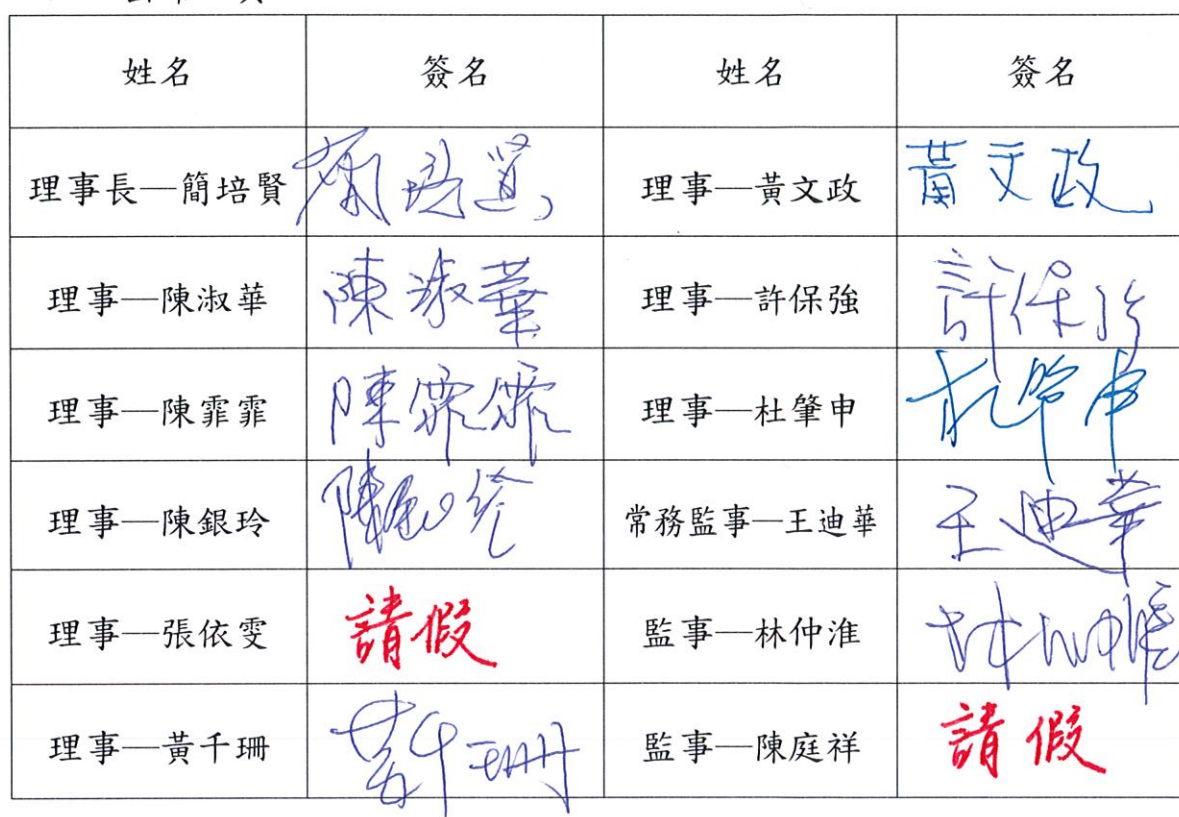 姓名 簽名 姓名 簽名
理事長—簡培賢 簡培賢 理事—黃文政 黃文政
理事—陳淑華 陳淑華 理事—許保強 許保強
理事—陳霏霏 陳霏霏 理事—杜肇申 杜肇申
理事—陳銀玲 陳銀玲 常務監事—王迪華 王迪華
理事—張依雯 請假 監事—林仲淮 林仲淮
理事—黃千珊 黃千珊 監事—陳庭祥 請假